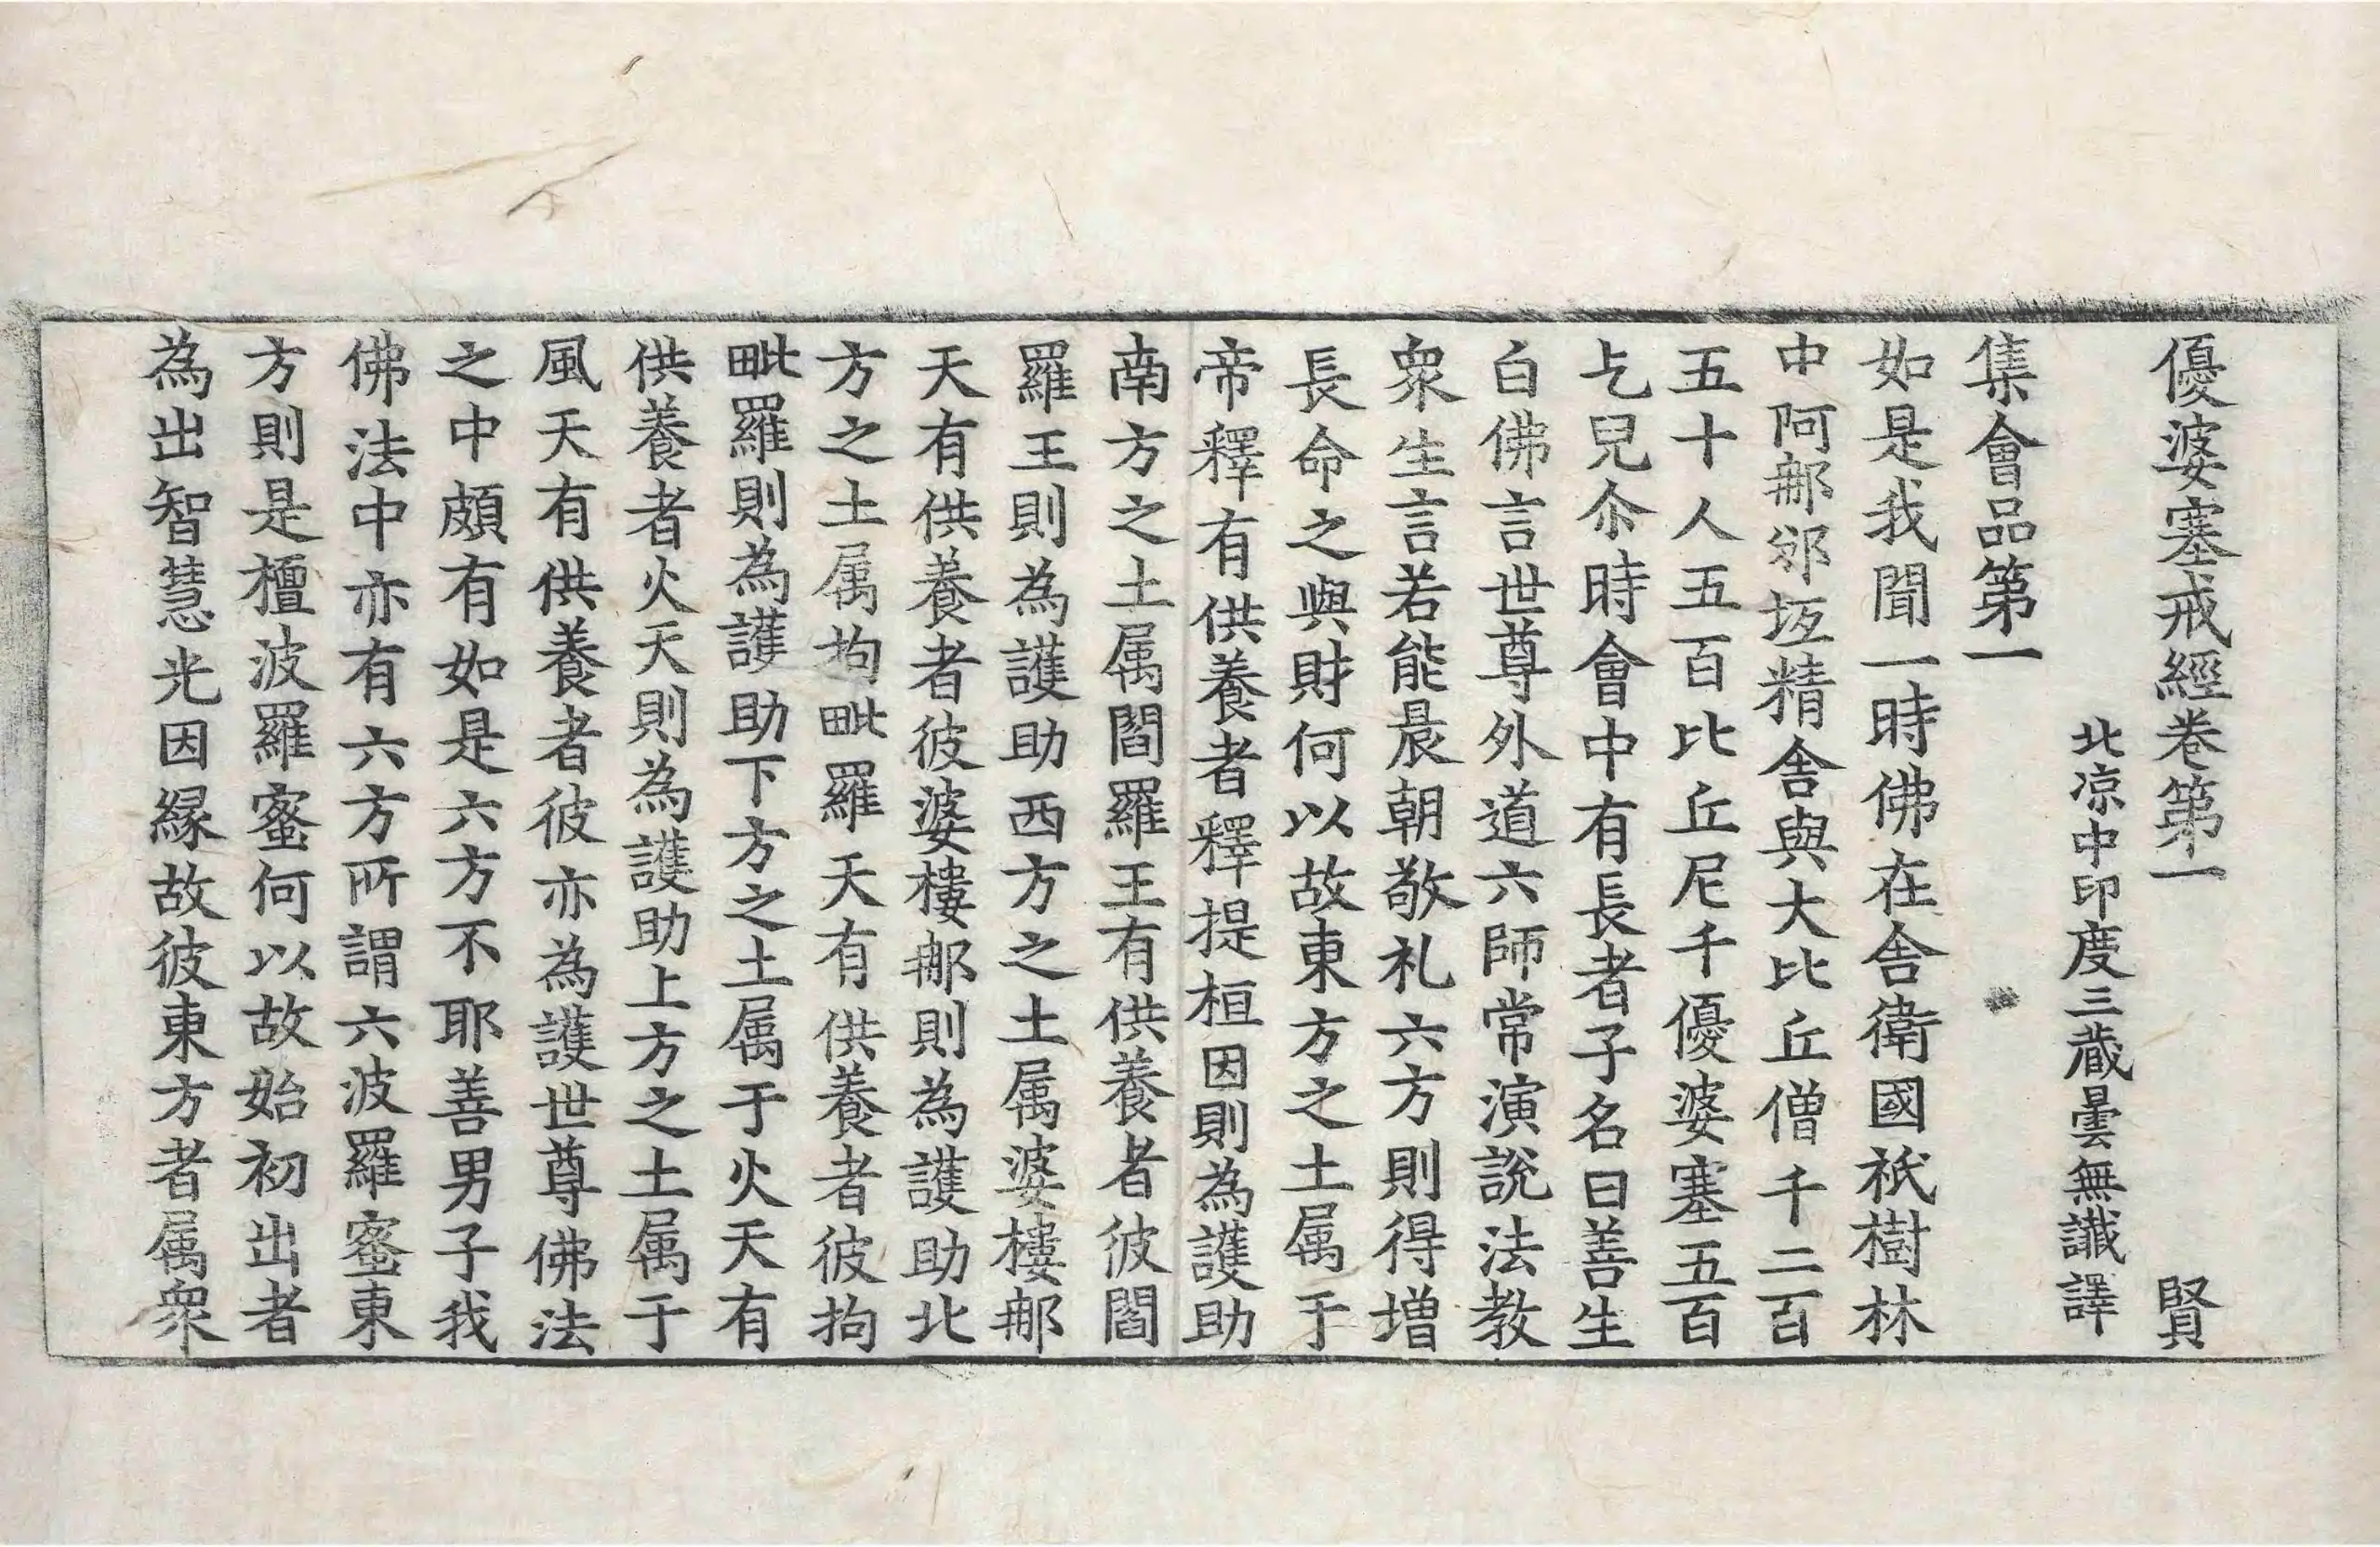 優婆塞戒經卷第一 賢
北凉中印度三藏曇無讖譯
集會品第一
如是我聞一時佛在舍衛國祇樹林
中阿那邠坻精舍與大比丘僧千二百
五十人五百比丘尼千優婆塞五百
乞兒尒時會中有長者子名曰善生
白佛言世尊外道六師常演說法教
衆生言若能晨朝敬礼六方則得增
長命之與財何以故東方之土属于
帝釋有供養者釋提桓因則為護助
南方之土属閻羅王有供養者彼閻
羅王則為護助西方之土属婆樓那
天有供養者彼婆樓那則為護助北
方之土属拘毗羅天有供養者彼拘
毗羅則為護助下方之土属于火天有
供養者火天則為護助上方之土属于
風天有供養者彼亦為護世尊佛法
之中頗有如是六方不耶善男子我
佛法中亦有六方所謂六波羅蜜東
方則是檀波羅蜜何以故始初出者
為出智慧光因緣故彼東方者属衆